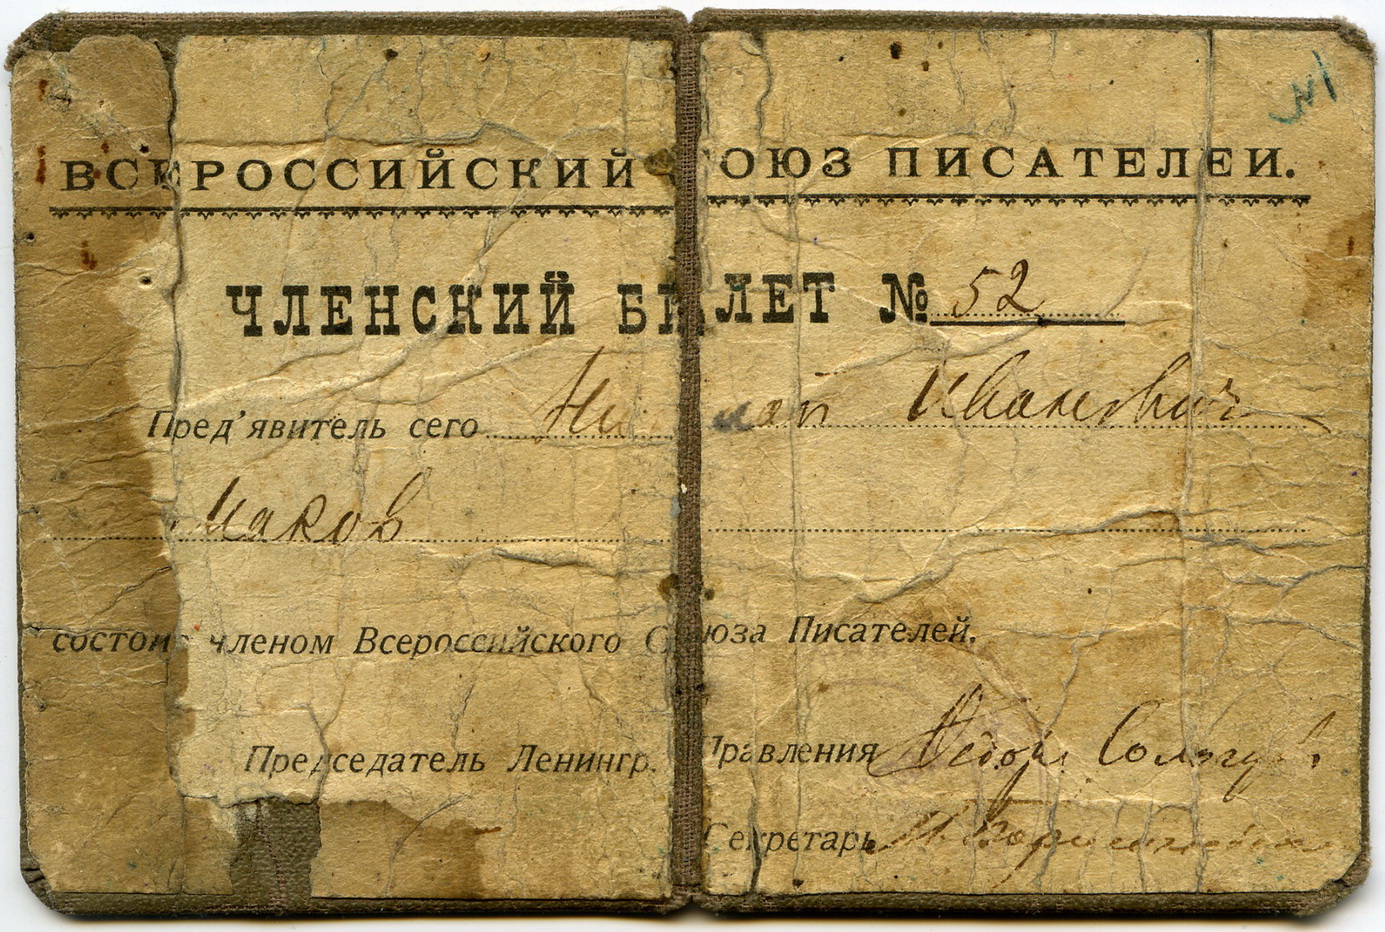 №1
ВСЕРОССИЙСКИЙ СОЮЗ ПИСАТЕЛЕЙ.
ЧЛЕНСКИЙ БИЛЕТ № 52
Пред'явитель сего Николай Иванович
Маков
состоит членом Всероссийского Союза Писателей.
Председатель Ленингр. Правления Федор Сологуб
Секретарь М.